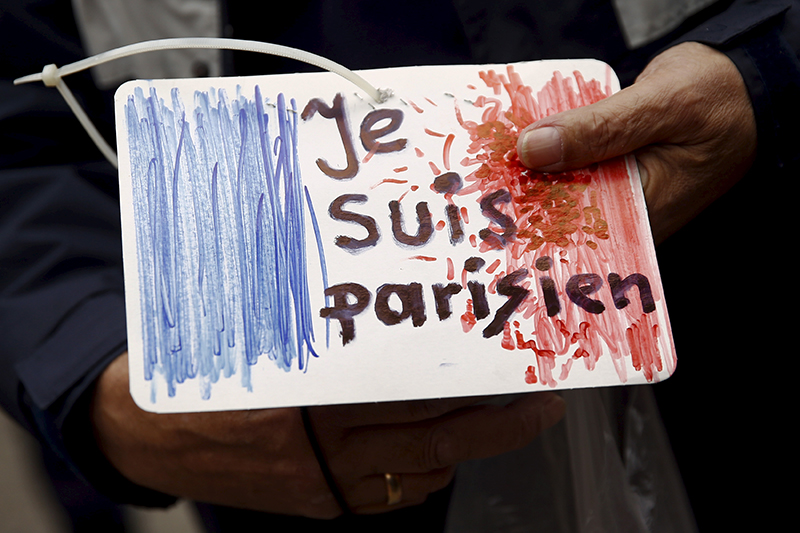 Je
suis
parisien